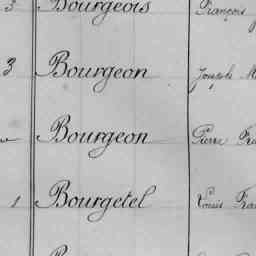 5 Bourgeois François
3 Bourgeon Joseph M
Bourgeon Pierre Fra
1 Bourgetel Louis Fra